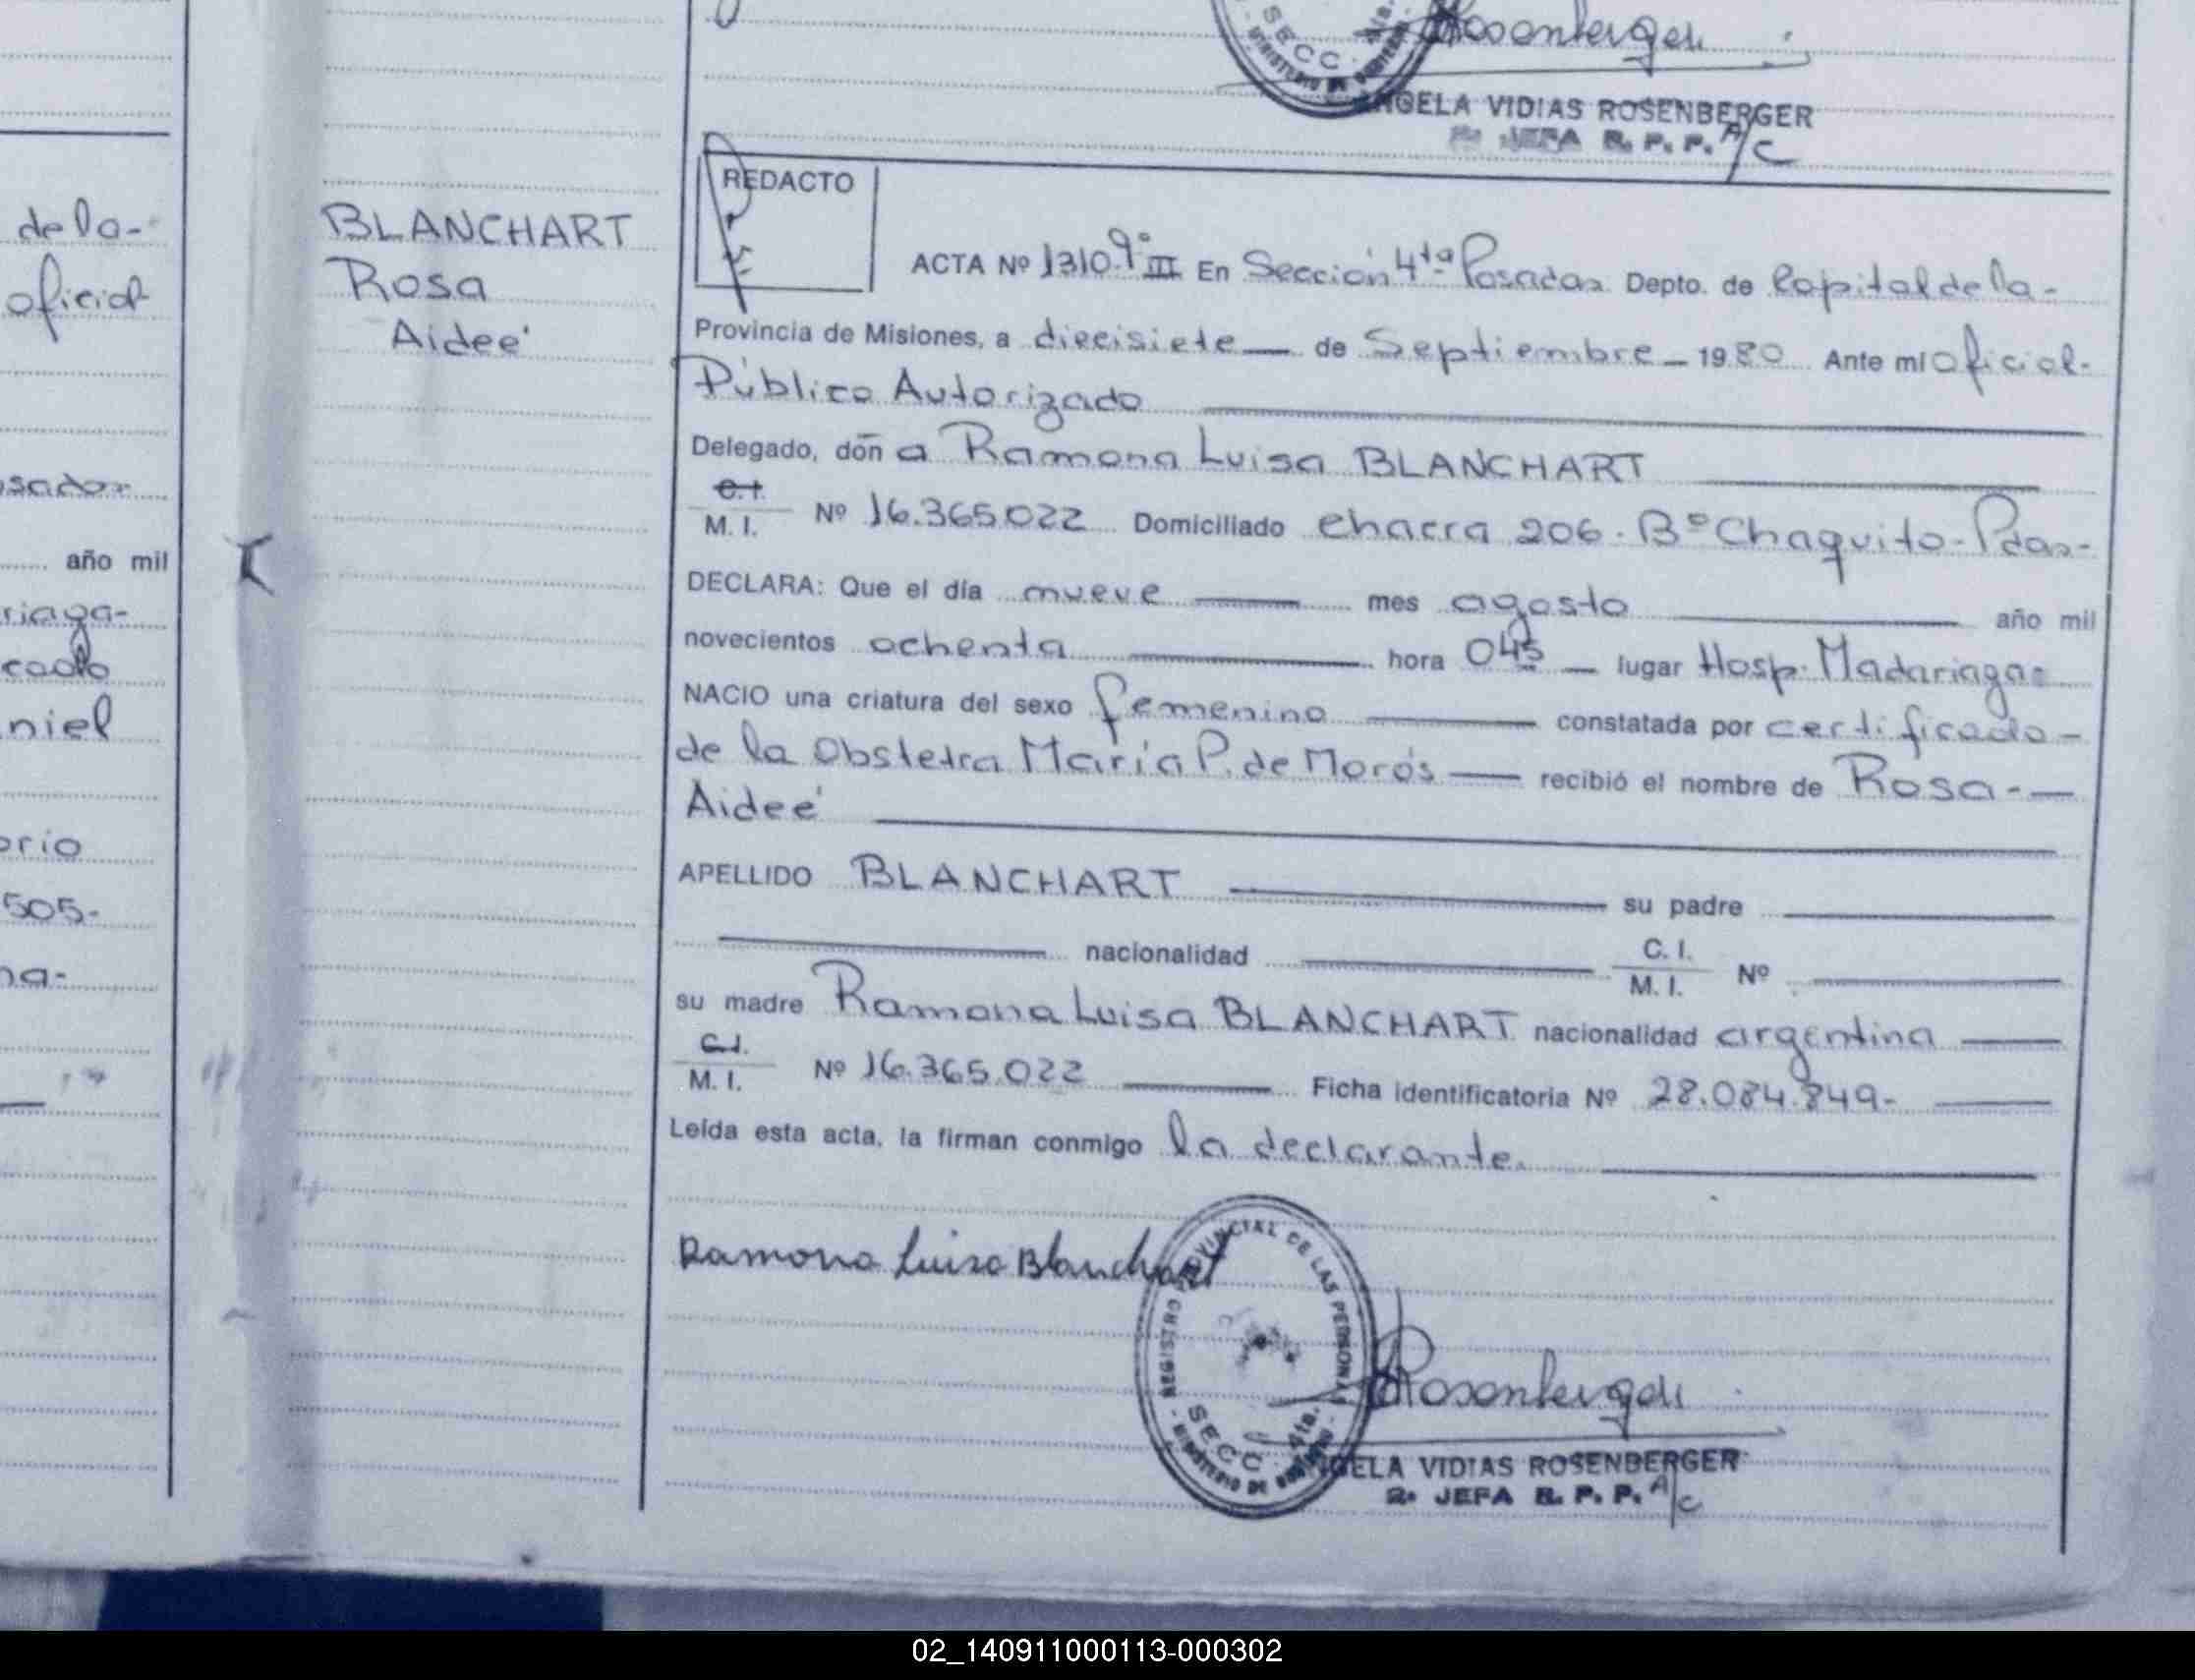 Rosenberger
SECC. 4ta.
MINISTERIO DE GOBIERNO
ANGELA VIDIAS ROSENBERGER
2º JEFA R. P. P. A/C
de la-
oficial
sadas
año mil
riaga-
cado
niel
orio
505-
na-
BLANCHART
Rosa
Aideé
REDACTO
ACTA Nº 1310 Tº III En Sección 4ta Posadas Depto. de Capital de la-
Provincia de Misiones, a diecisiete de Septiembre 1980 Ante mi Oficial-
Público Autorizado
Delegado, don a Ramona Luisa BLANCHART
C.I.
M. I. Nº 16.365.022 Domiciliado chacra 206 - Bº Chaquito - Pdas-
DECLARA: Que el día nueve mes agosto año mil
novecientos ochenta hora 045 lugar Hosp. Madariaga-
NACIO una criatura del sexo femenino constatada por certificado-
de la Obstetra María P. de Morós recibió el nombre de Rosa-
Aideé
APELLIDO BLANCHART su padre
nacionalidad C. I.
M. I. Nº
su madre Ramona Luisa BLANCHART nacionalidad argentina
C.I.
M. I. Nº 16.365.022 Ficha identificatoria Nº 28.084.849-
Leída esta acta, la firman conmigo la declarante.
Ramona Luisa Blanchart
REGISTRO PROVINCIAL DE LAS PERSONAS
SECC. 4ta.
MINISTERIO DE GOBIERNO
Rosenberger
ANGELA VIDIAS ROSENBERGER
2º JEFA R. P. P. A/C
02_140911000113-000302